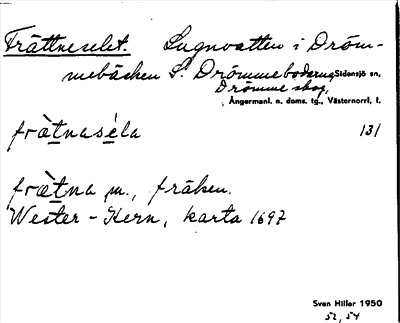 Frättneselet. Lugnvatten i Dröm-
mebäcken S. Drömmebodarna Sidensjö sn,
Drömme skog,
Ångermanl. n. doms. tg., Västernorrl. l.
frä̀tnaséla 131
frä̀tna m., fräken.
Wester-Kern, karta 1697
Sven Hiller 1950
52, 54